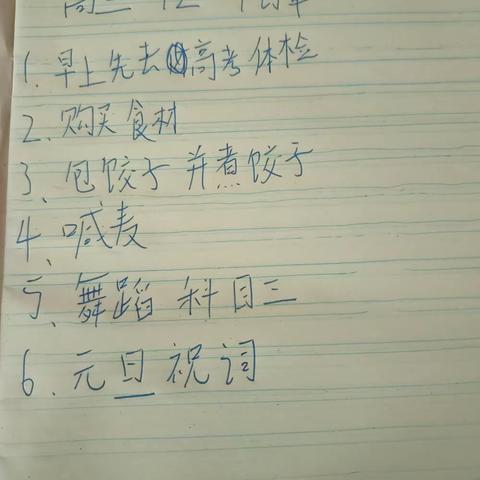 1、早上先去高考体检
2、购买食材
3、包饺子 并煮饺子
4、喊麦
5、舞蹈 科目三
6、元旦祝词